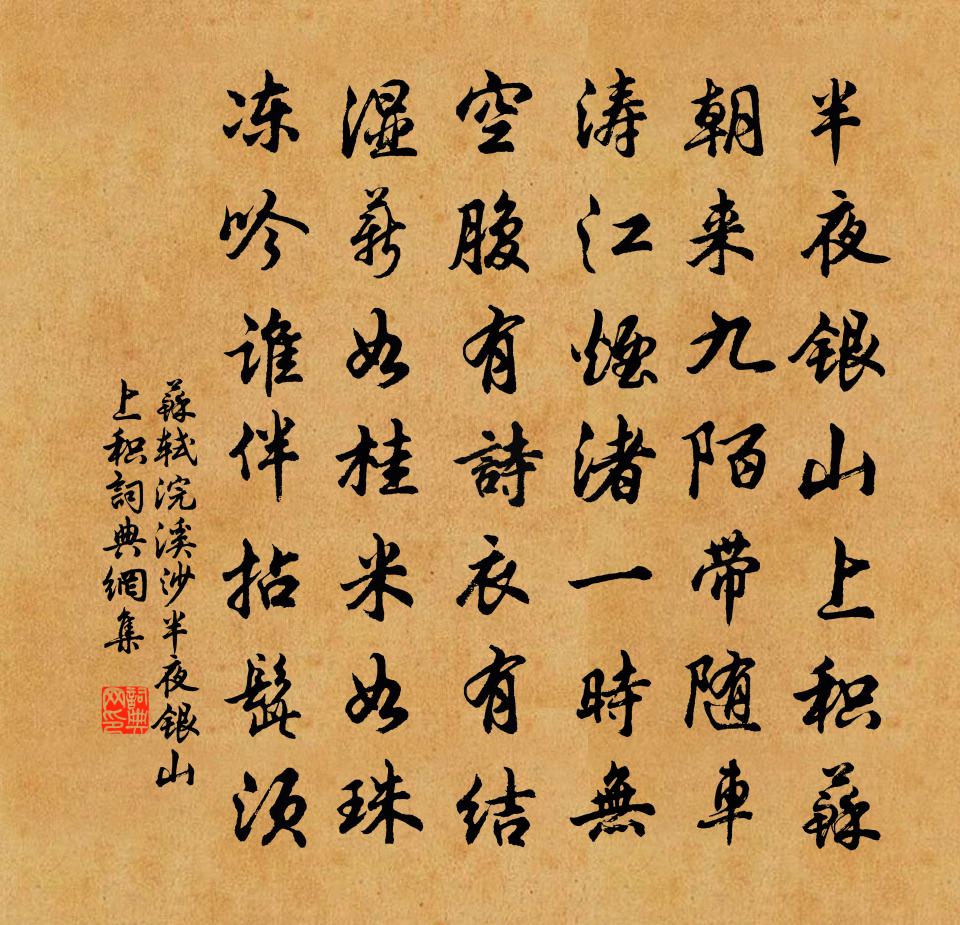 半夜銀山上积蘇
朝来九陌带随車
涛江煙渚一時無
空腹有詩衣有结
湿薪如桂米如珠
冻吟谁伴拈髭须
蘇轼浣溪沙半夜银山
上积詞典網集
詞典网印